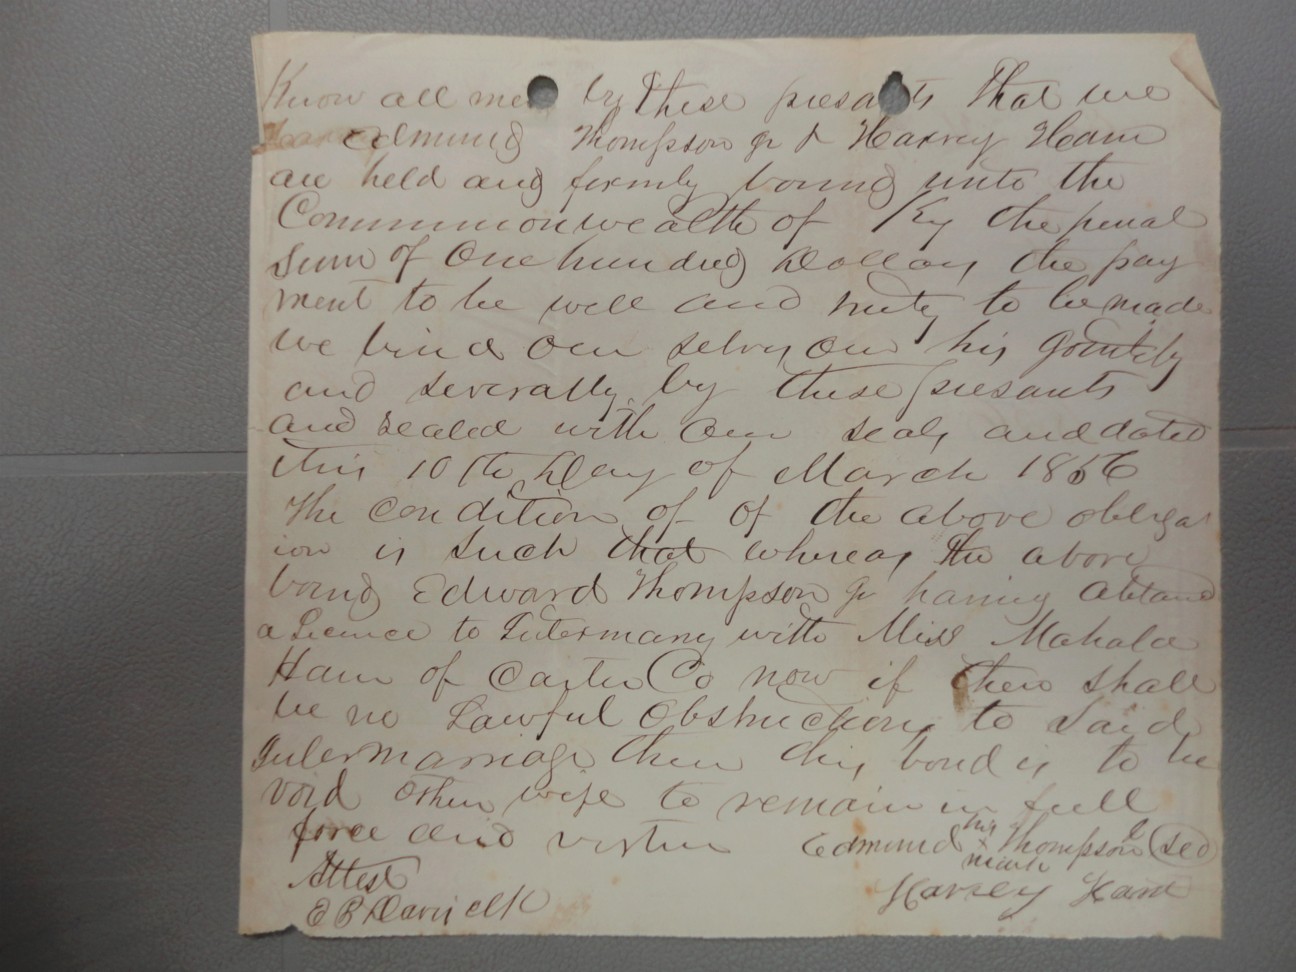 Know all men by these presants that we
Edmund Thompson Jr & Harvey Ham
are held and firmly bound unto the
Commonwealth of Ky the penal
Sum of One hundred Dollars the pay
ment to be well and truly to be made
we bind our selvs our his Jointly
and severally by these presants
and sealed with our seals and dated
this 10th Day of March 1866
The condition of of the above obligat
ion is such that whereas the above
bound Edward Thompson Jr having Abtaind
a Licence to Intermarry with Miss Mahala
Ham of Carter Co now if ther shall
be no Lawful Obstructions to Said
Intermarriage then this bond is to be
void Other wise to remain in full
force and virtue Edmund his x mark Thompson Jr (sed)
Attest Harvey Ham
E B Davis clk